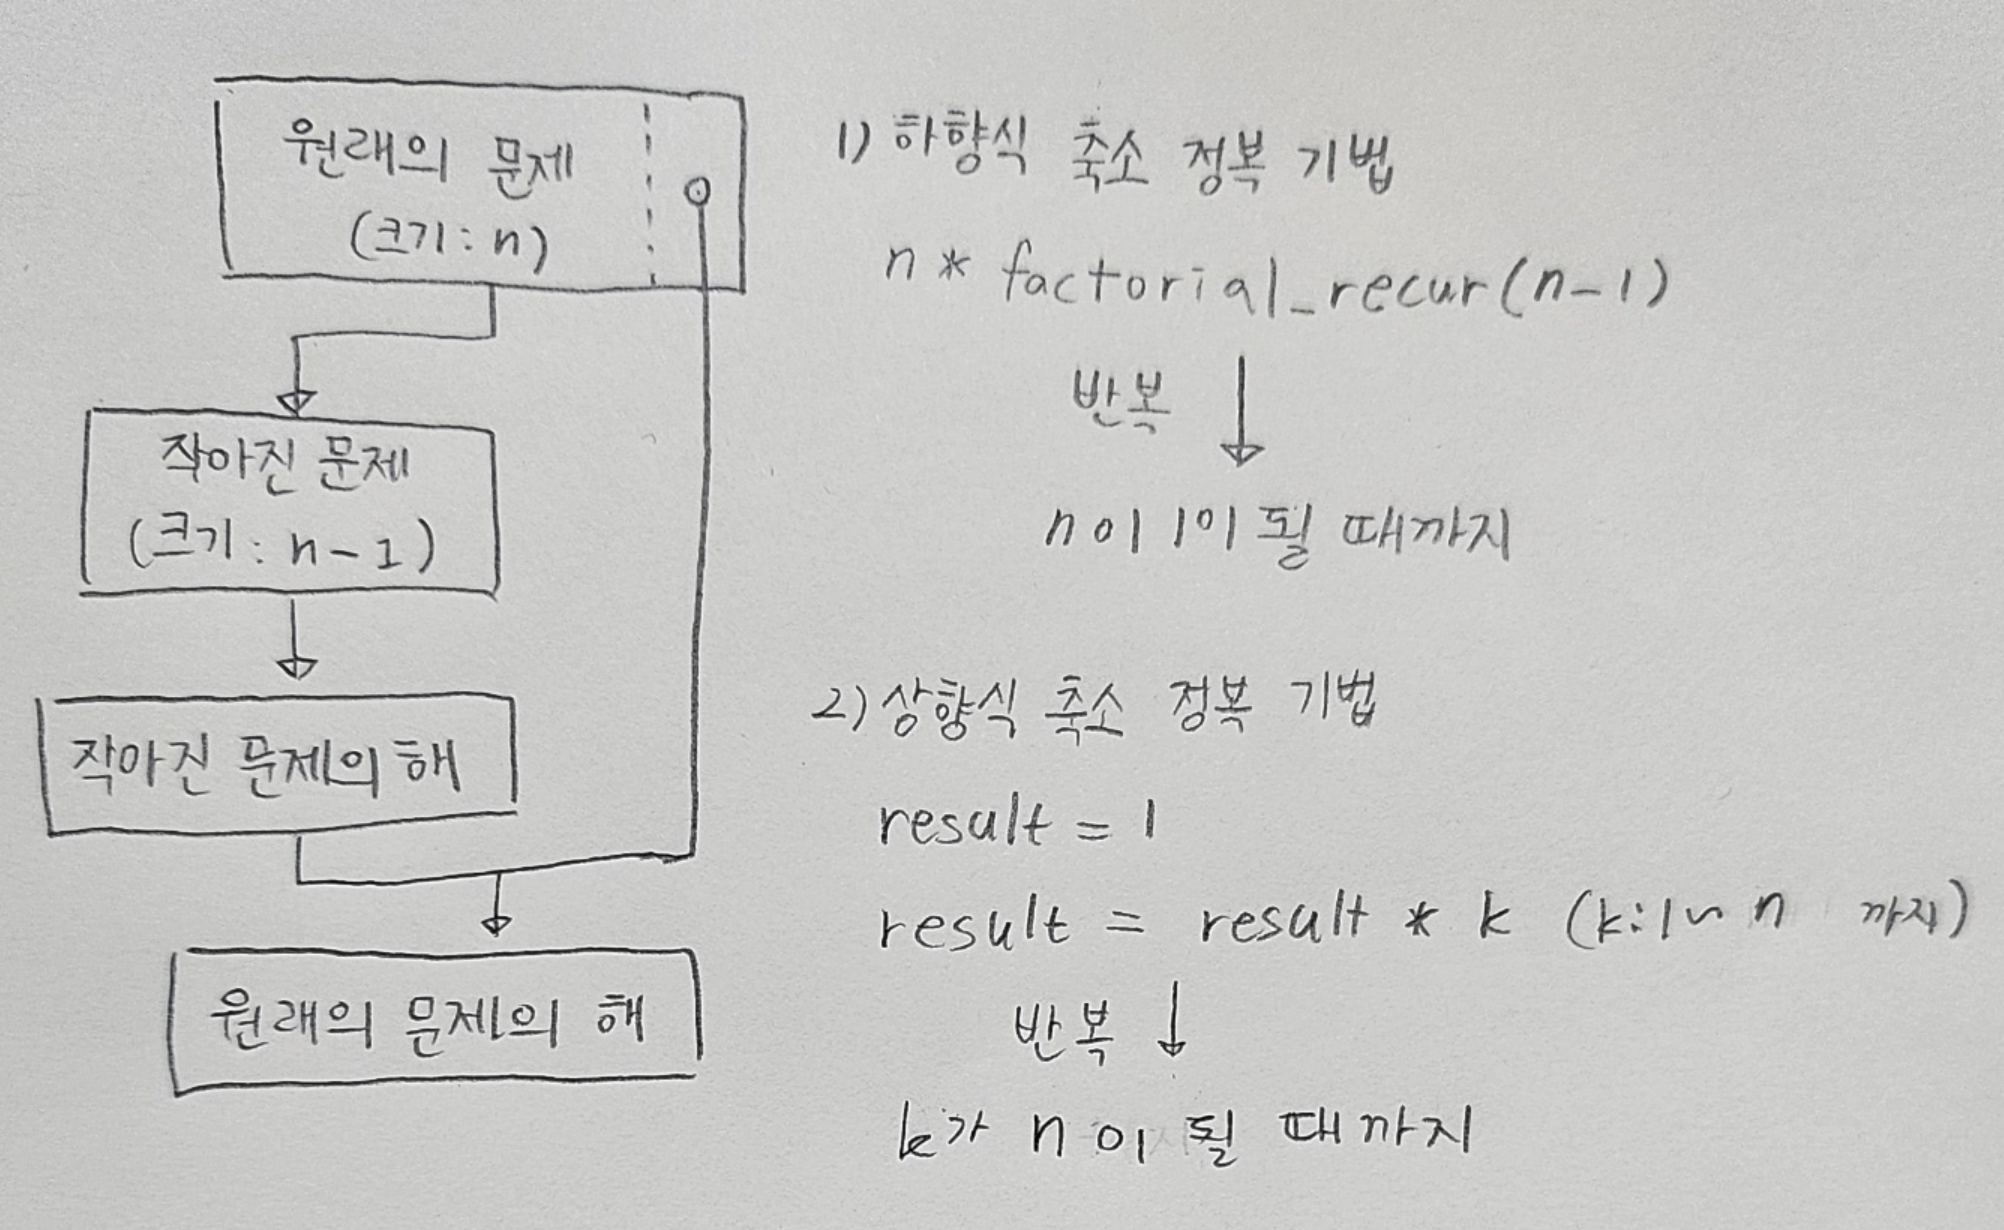 원래의 문제
(크기 : n)
작아진 문제
(크기 : n-1)
작아진 문제의 해
원래의 문제의 해
1) 하향식 축소 정복 기법
n * factorial_recur(n-1)
반복 ↓
n이 1이 될 때까지
2) 상향식 축소 정복 기법
result = 1
result = result * k (k:1~n 까지)
반복 ↓
k가 n이 될 때까지